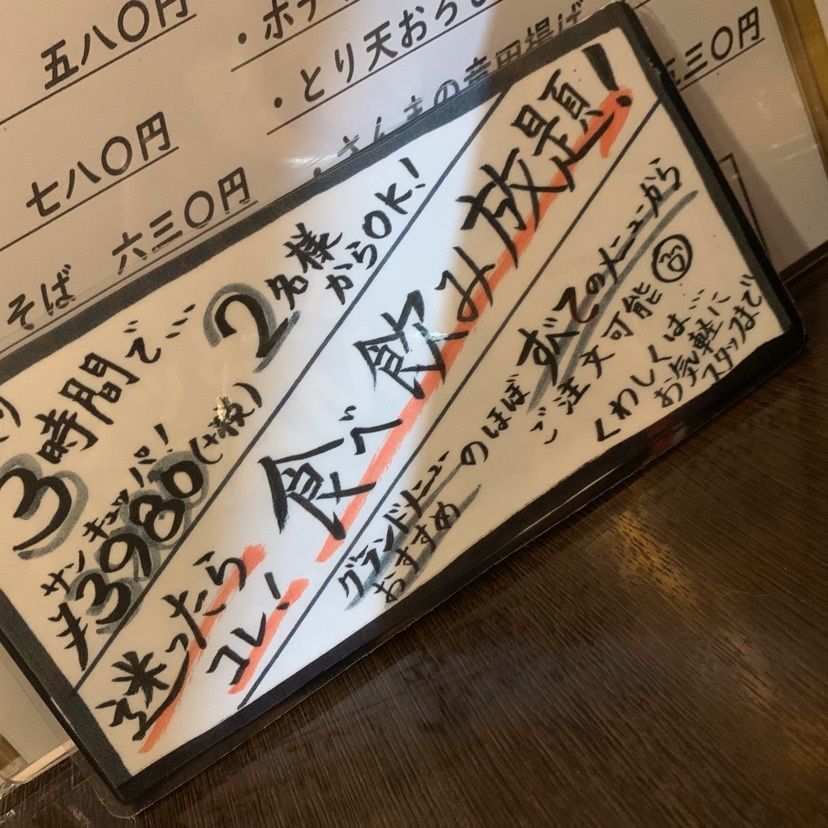 五八〇円
七八〇円
そば 六三〇円
・とり天おろし
三〇円
3時間で…
2名様
からOK!
サンキュッパ!
¥3980(税
迷ったら
コレ!
食べ飲み放題!
グランドメニュー
おすすめ
のほぼ
すべてのメニューから
ご注文可能
くわしくは…
お気軽に
スタッフまで